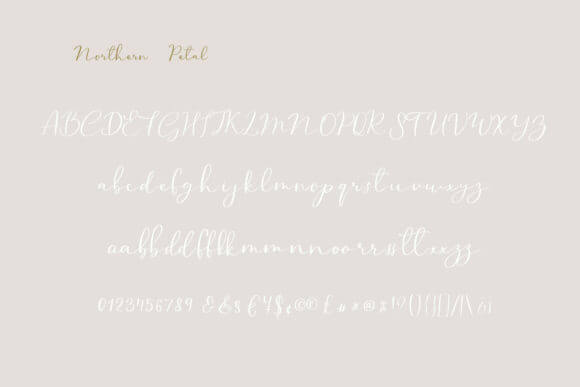 Northern Petal
ABCDEFGHIJKLMNOPQRSTUVWXYZ
abcdefghyklmnopqrstuvwxyz
aabbddffkkmmnnoorrssttxxzz
0123456789 & & $ £ ¥ $ ¢ © © £ # ® * ( ) { } [ ] / | \